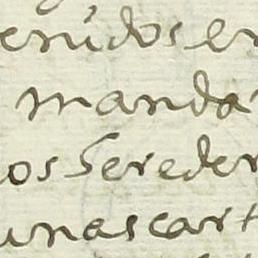 enidos en
manda
os Sereder
unas cart